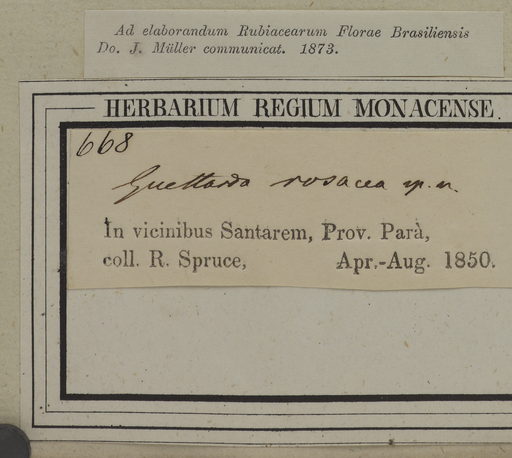 Ad elaborandum Rubiacearum Florae Brasiliensis
Do. J. Müller communicat. 1873.
HERBARIUM REGIUM MONACENSE.
668
Guettarda rosacea sp. n.
In vicinibus Santarem, Prov. Parà,
coll. R. Spruce, Apr.-Aug. 1850.